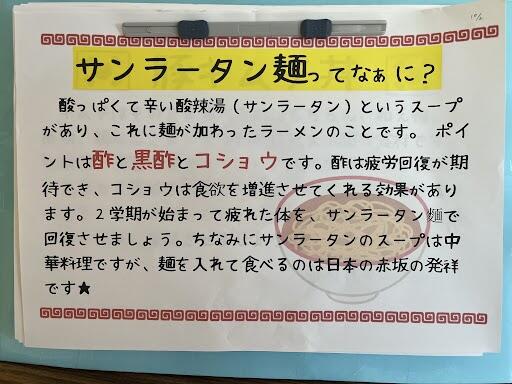 サンラータン麺ってなぁに？
酸っぱくて辛い酸辣湯（サンラータン）というスープ
があり、これに麺が加わったラーメンのことです。 ポイ
ントは酢と黒酢とコショウです。酢は疲労回復が期
待でき、コショウは食欲を増進させてくれる効果があり
ます。２学期が始まって疲れた体を、サンラータン麺で
回復させましょう。ちなみにサンラータンのスープは中
華料理ですが、麺を入れて食べるのは日本の赤坂の発祥
です★